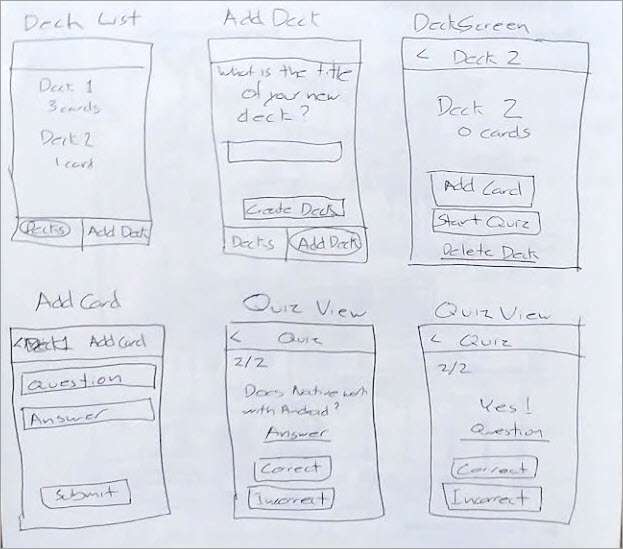 Deck List
Deck 1
3 cards
Deck 2
1 card
Decks Add Deck
Add Deck
What is the title
of your new
deck?
Create Deck
Decks Add Deck
DeckScreen
< Deck 2
Deck 2
0 cards
Add Card
Start Quiz
Delete Deck
Add Card
< Deck 1 Add Card
Question
Answer
Submit
Quiz View
< Quiz
2/2
Does Native work
with Android?
Answer
Correct
Incorrect
Quiz View
< Quiz
2/2
Yes!
Question
Correct
Incorrect